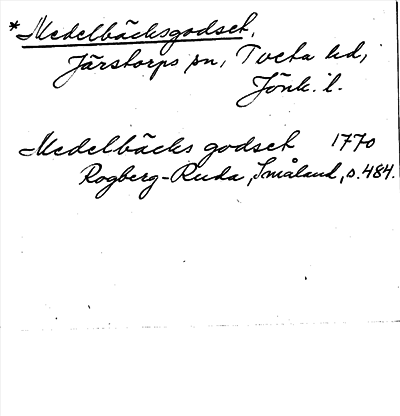 *Medelbäcksgodset,
Järstorps sn, Tveta hd,
Jönk. l.
Medelbäcks godset 1770
Rogberg-Ruda, Småland, s. 484.